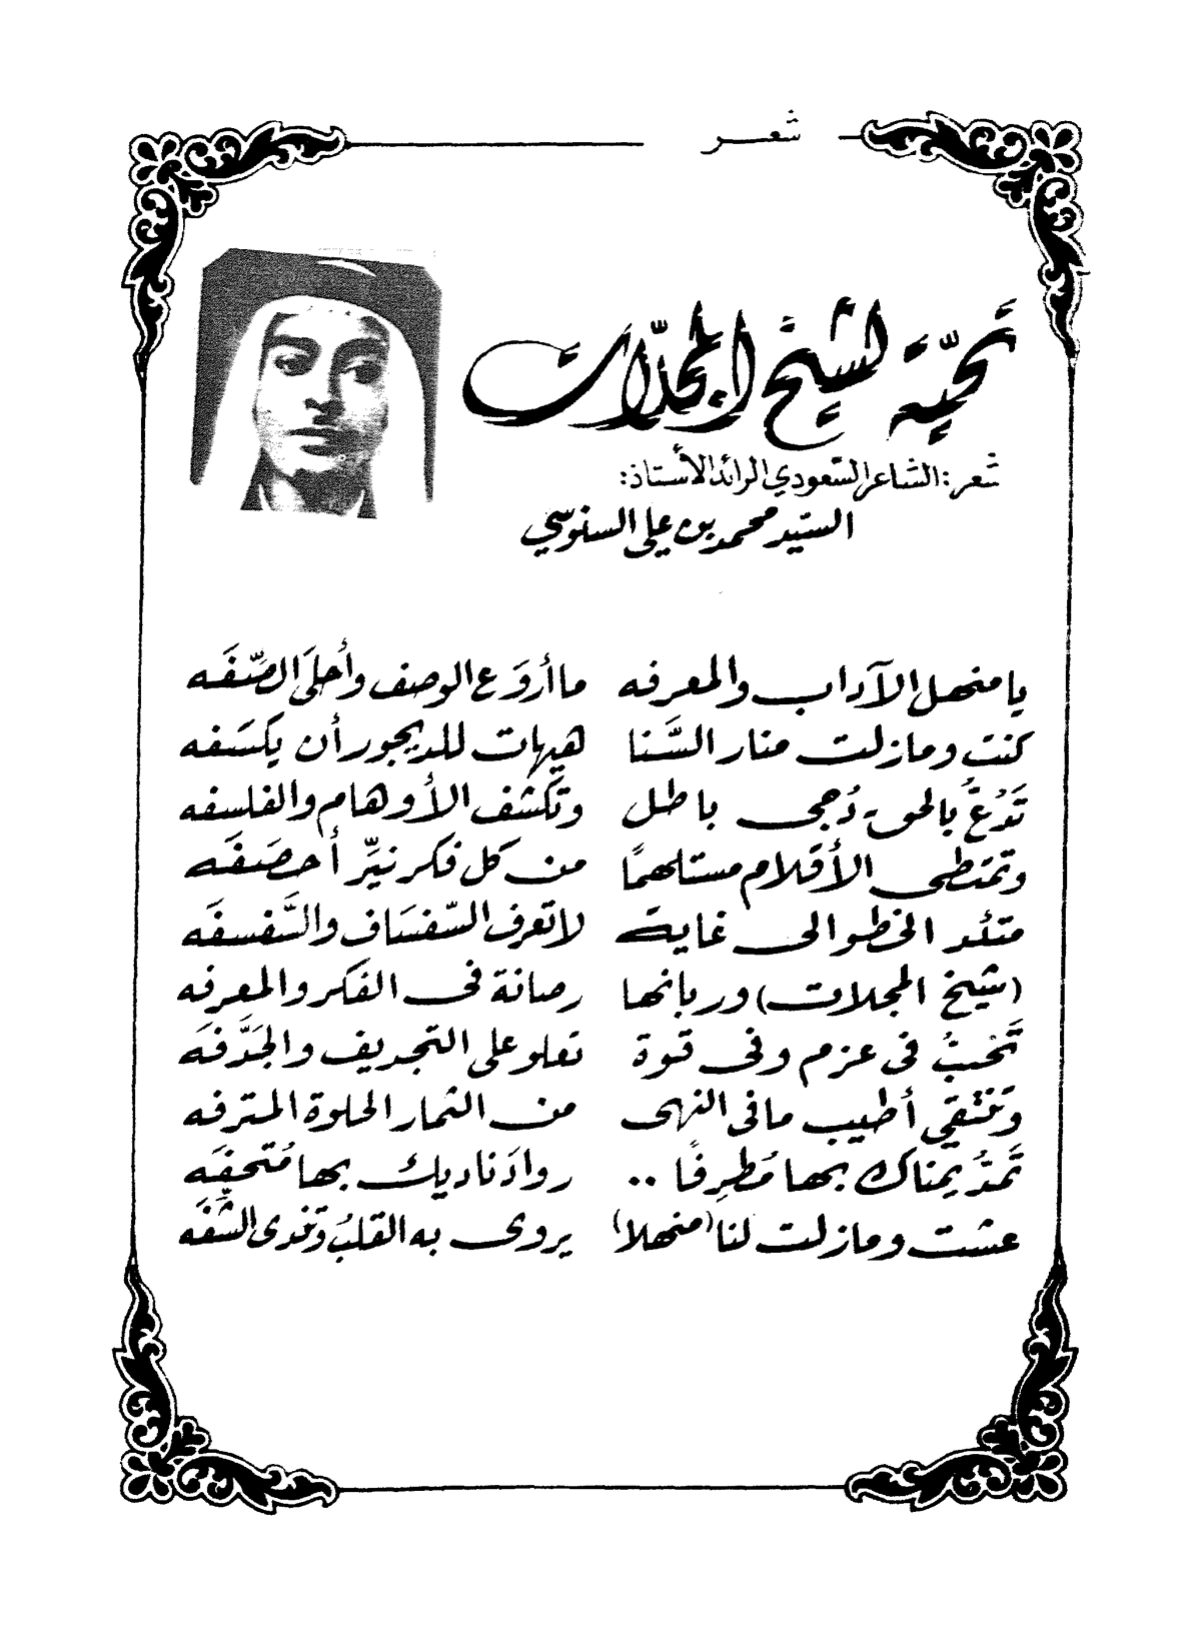 شعر
تحيّة لشيخ المجلّات
شعر: الشاعر السّعودي الرائد الأستاذ:
السيّد محمد بن علي السنوسي
يا منهل الآداب والمعرفه ما أروَع الوصف وأحلَى الصِّفَه
كنت وما زلت منار السَّنا هيهات للديجور أن يكسَفه
تَدُعُّ بالحق دُجى باطل وتكشف الأوهام والفلسفه
وتمتطى الأقلام مستلهمًا من كل فكر نيِّر أحصَفَه
متئد الخطو الى غاية لا تعرف السّفسَاف والسَّفسفَه
(شيخ المجلات) وربانها رصانة فى الفكر والمعرفه
تَخُبُّ فى عزم وفى قوة تعلو على التجديف والجَدَّفَه
وتَنْتَقي أطيب ما فى النهى من الثمار الحلوة المترفه
تَمدُّ يمناك بها مُطرِفًا .. روادَ ناديك بها مُتحفِه
عشت وما زلت لنا (منهلا) يروى به القلبُ وتندى الشّفَه